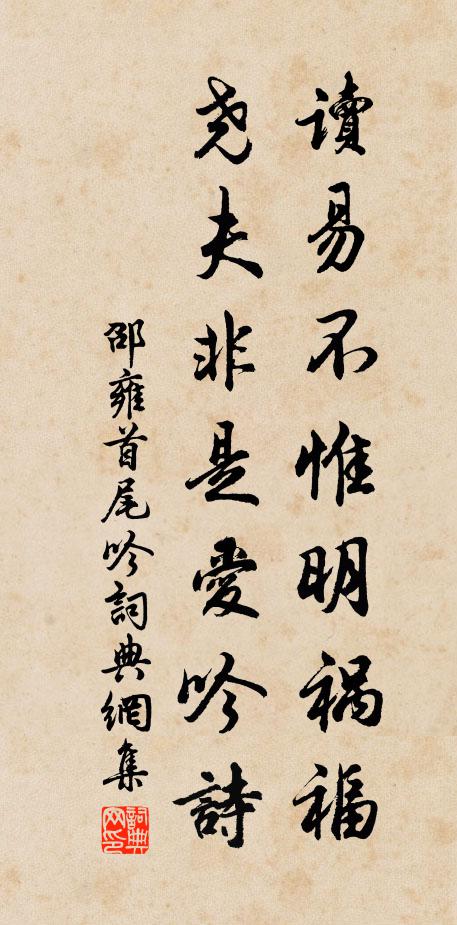 讀易不惟明禍福
堯夫非是愛吟詩
邵雍首尾吟詞典網集
詞典网印